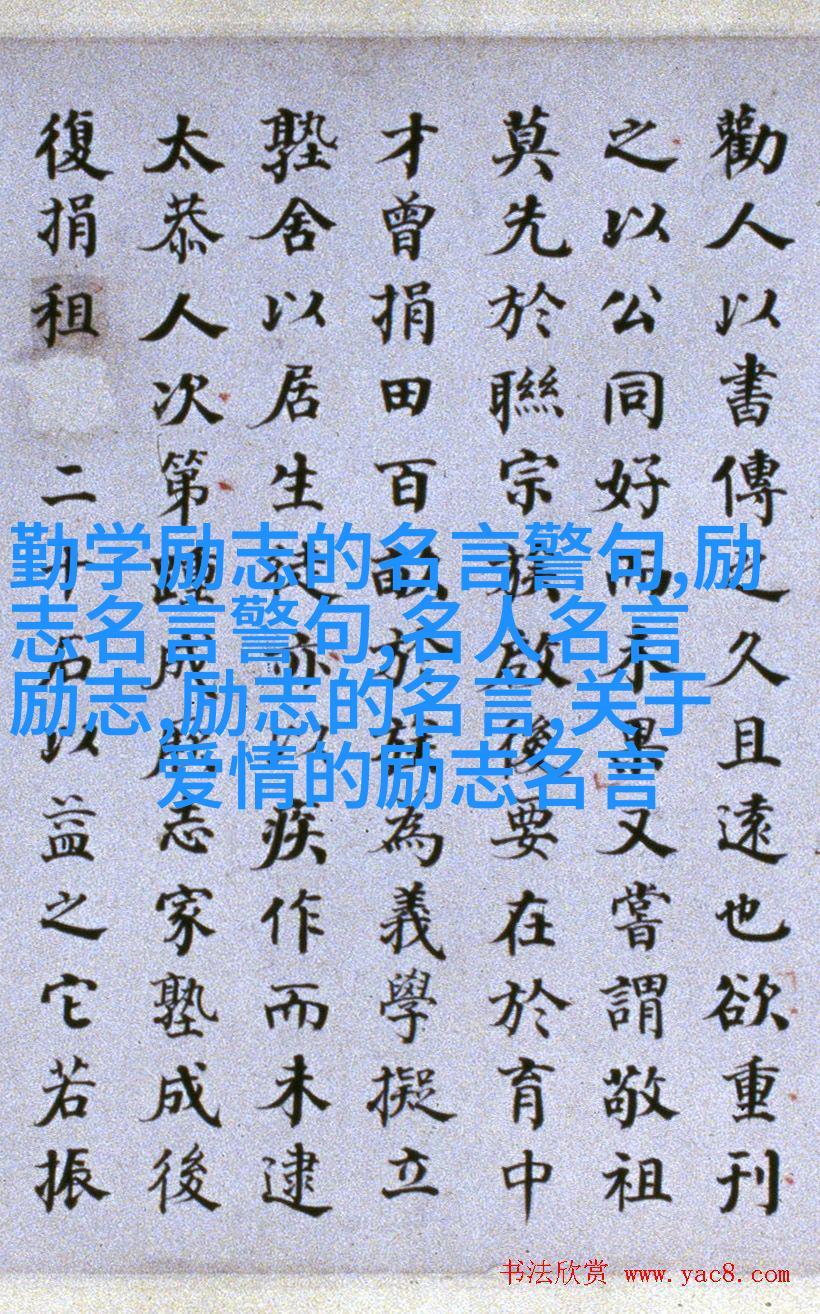 勸人以書傳之久且遠也欲重刊
之以公同好而未果又嘗謂敬祖
莫先於聯宗族啟後要在於育中
才曾捐田百畝於族為義學擬立
塾舍以居生徒亦以疾作而未逮
太恭人次第踵成厥志家塾成後
復捐租二十石以益之它若振
勤学励志的名言警句,励
志名言警句,名人名言
励志,励志的名言,关于
爱情的励志名言
书法欣赏 www.yac8.com